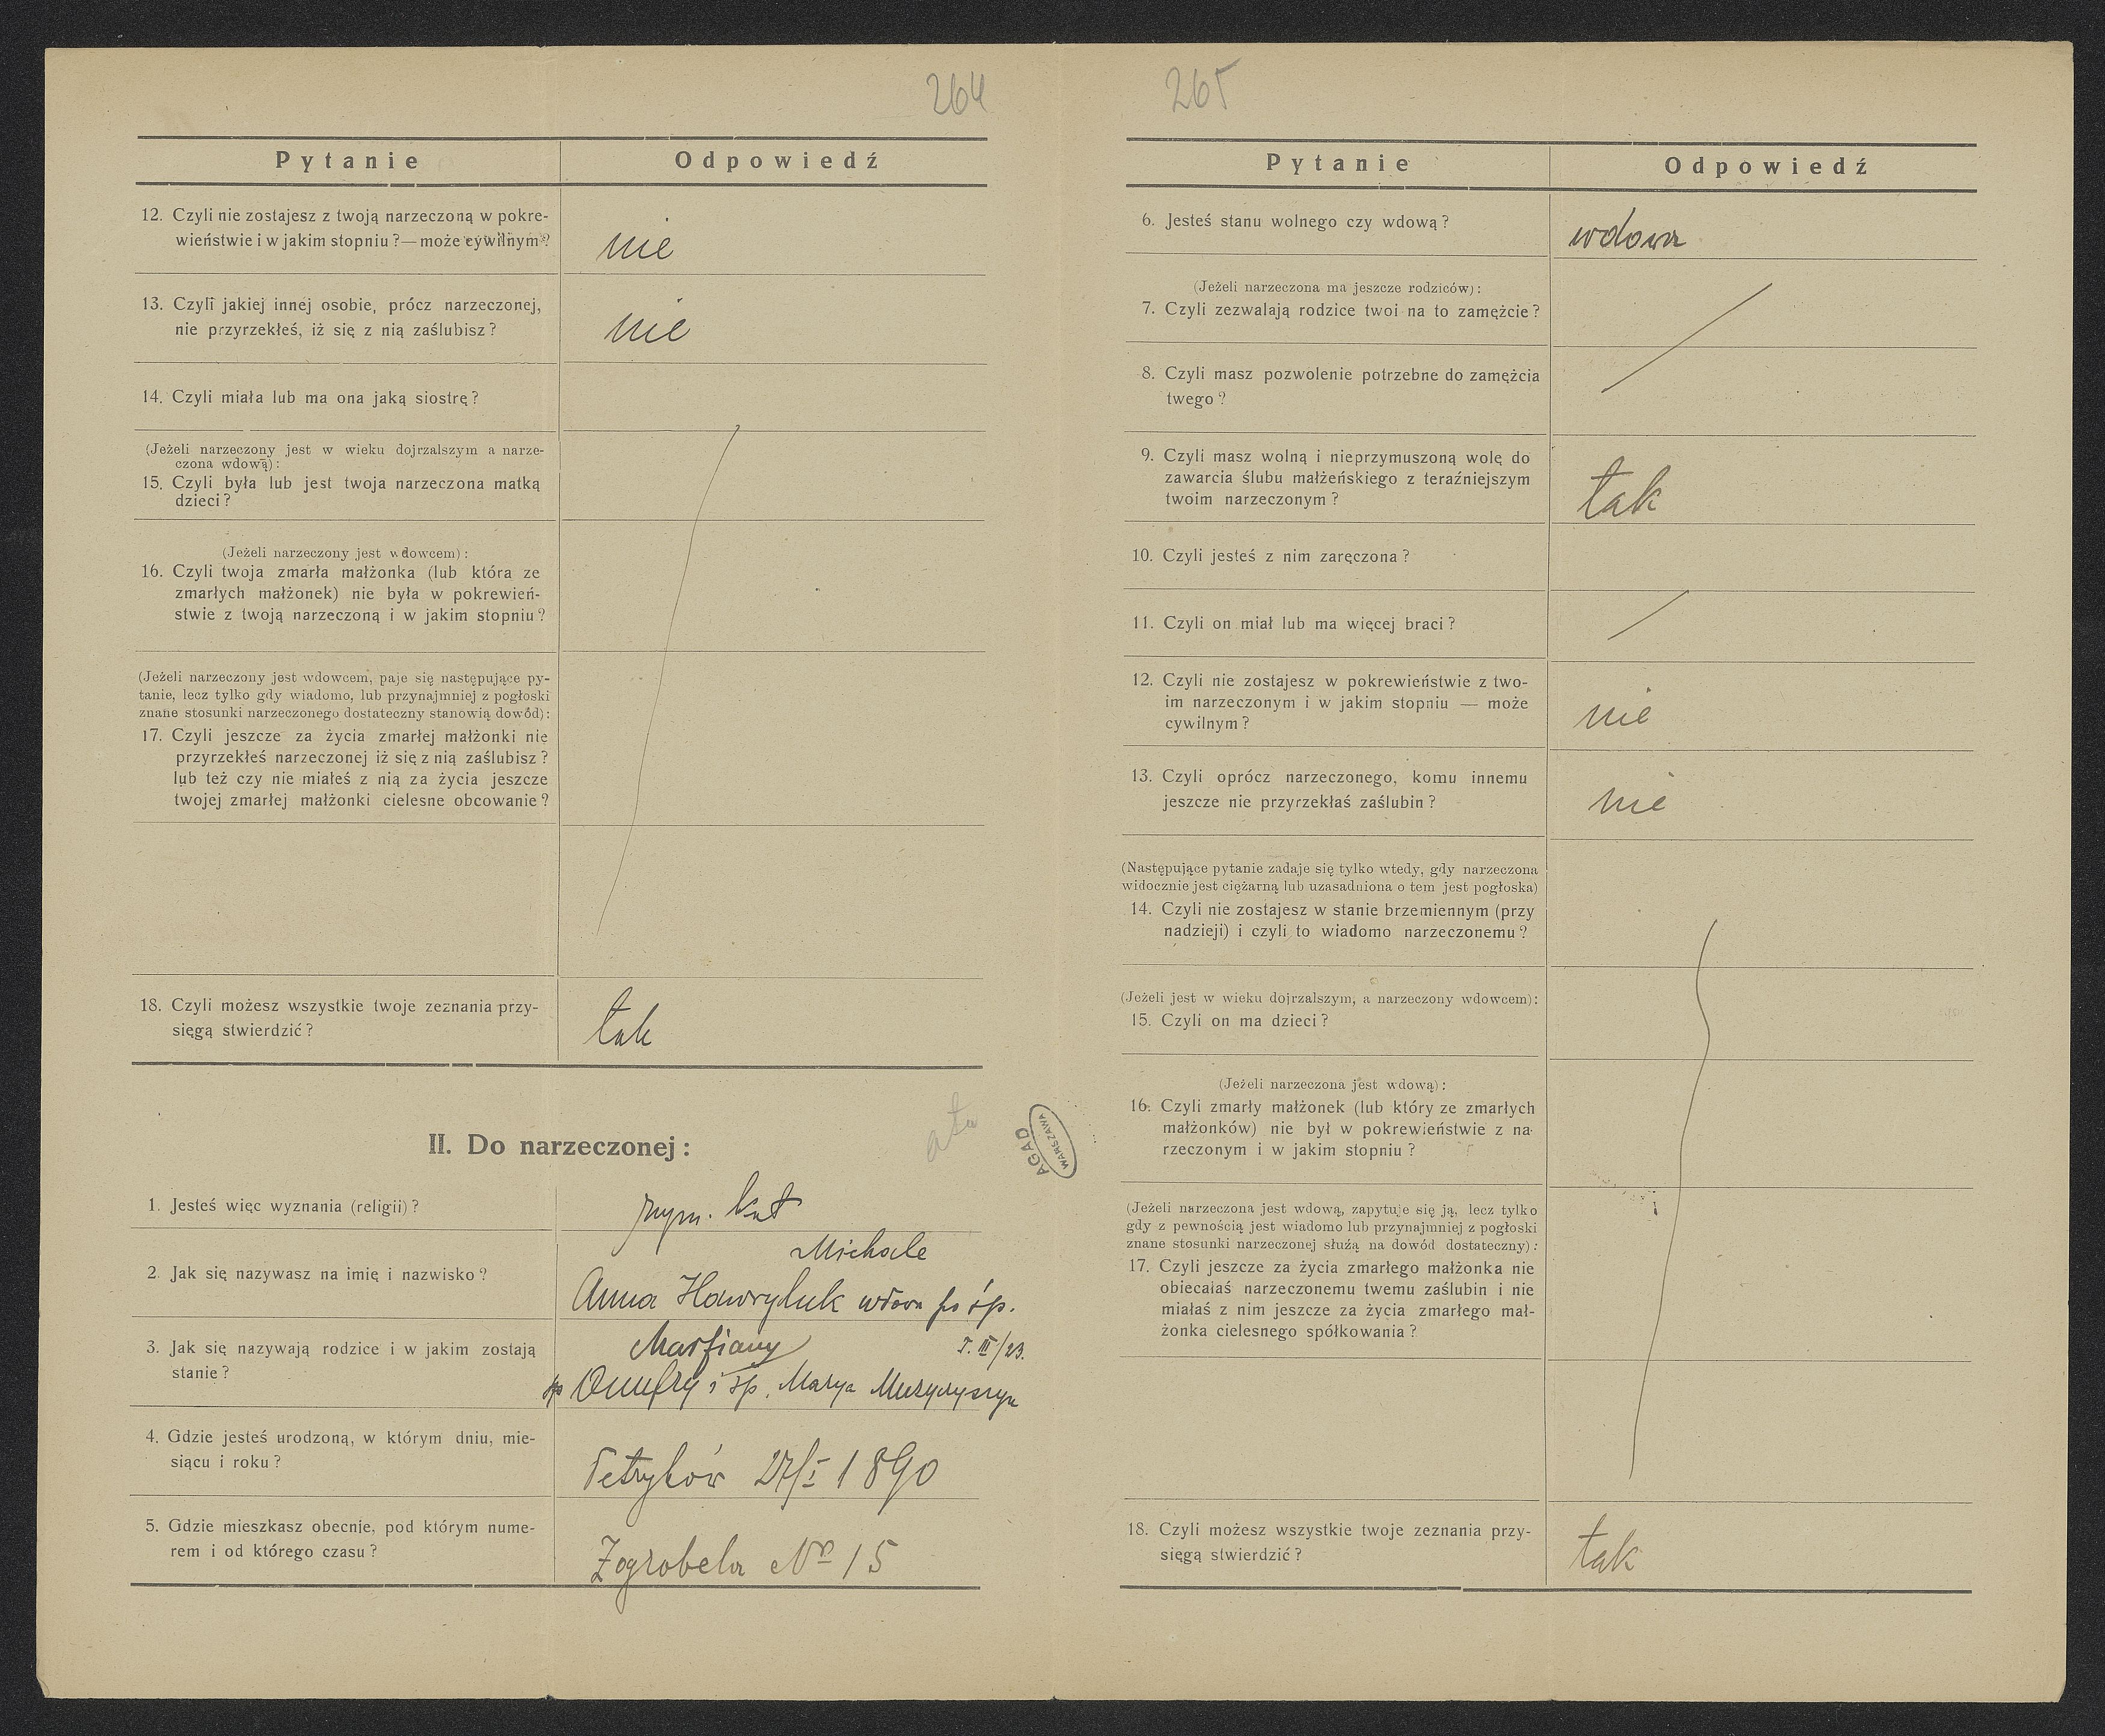 264
Pytanie Odpowiedź
12. Czyli nie zostajesz z twoją narzeczoną w pokre-
wieństwie i w jakim stopniu ?— może cywilnym? nie
13. Czyli jakiej innej osobie, prócz narzeczonej,
nie przyrzekłeś, iż się z nią zaślubisz ? nie
14. Czyli miała lub ma ona jaką siostrę ?
(Jeżeli narzeczony jest w wieku dojrzalszym a narze-
czona wdową) :
15. Czyli była lub jest twoja narzeczona matką
dzieci ?
(Jeżeli narzeczony jest wdowcem) :
16. Czyli twoja zmarła małżonka (lub która ze
zmarłych małżonek) nie była w pokrewień-
stwie z twoją narzeczoną i w jakim stopniu ?
(Jeżeli narzeczony jest wdowcem, paje się następujące py-
tanie, lecz tylko gdy wiadomo, lub przynajmniej z pogłoski
znane stosunki narzeczonego dostateczny stanowią dowód) :
17. Czyli jeszcze za życia zmarłej małżonki nie
przyrzekłeś narzeczonej iż się z nią zaślubisz ?
lub też czy nie miałeś z nią za życia jeszcze
twojej zmarłej małżonki cielesne obcowanie ?
18. Czyli możesz wszystkie twoje zeznania przy-
sięgą stwierdzić ? tak
II. Do narzeczonej :
AGAD
WARSZAWA
1. Jesteś więc wyznania (religii) ? rzym. kat
Michale
2. Jak się nazywasz na imię i nazwisko ? Anna Hawryluk wdowa po śp.
3. Jak się nazywają rodzice i w jakim zostają
stanie ? III/23.
śp Onufry i śp. Marya
4. Gdzie jesteś urodzoną, w którym dniu, mie-
siącu i roku ? Petryków 27/I 1890
5. Gdzie mieszkasz obecnie, pod którym nume-
rem i od którego czasu ? Zagrobela No 15
265
Pytanie Odpowiedź
6. Jesteś stanu wolnego czy wdową ? wdowa
(Jeżeli narzeczona ma jeszcze rodziców) :
7. Czyli zezwalają rodzice twoi na to zamężcie ?
8. Czyli masz pozwolenie potrzebne do zamężcia
twego ?
9. Czyli masz wolną i nieprzymuszoną wolę do
zawarcia ślubu małżeńskiego z teraźniejszym
twoim narzeczonym ? tak
10. Czyli jesteś z nim zaręczona ?
11. Czyli on miał lub ma więcej braci ?
12. Czyli nie zostajesz w pokrewieństwie z two-
im narzeczonym i w jakim stopniu — może
cywilnym ? nie
13. Czyli oprócz narzeczonego, komu innemu
jeszcze nie przyrzekłaś zaślubin ? nie
(Następujące pytanie zadaje się tylko wtedy, gdy narzeczona
widocznie jest ciężarną lub uzasadniona o tem jest pogłoska)
14. Czyli nie zostajesz w stanie brzemiennym (przy
nadzieji) i czyli to wiadomo narzeczonemu ?
(Jeżeli jest w wieku dojrzalszym, a narzeczony wdowcem) :
15. Czyli on ma dzieci ?
(Jeżeli narzeczona jest wdową) :
16. Czyli zmarły małżonek (lub który ze zmarłych
małżonków) nie był w pokrewieństwie z na-
rzeczonym i w jakim stopniu ?
(Jeżeli narzeczona jest wdową, zapytuje się ją, lecz tylko
gdy z pewnością jest wiadomo lub przynajmniej z pogłoski
znane stosunki narzeczonej służą na dowód dostateczny) :
17. Czyli jeszcze za życia zmarłego małżonka nie
obiecałaś narzeczonemu twemu zaślubin i nie
miałaś z nim jeszcze za życia zmarłego mał-
żonka cielesnego spółkowania ?
18. Czyli możesz wszystkie twoje zeznania przy-
sięgą stwierdzić ? tak